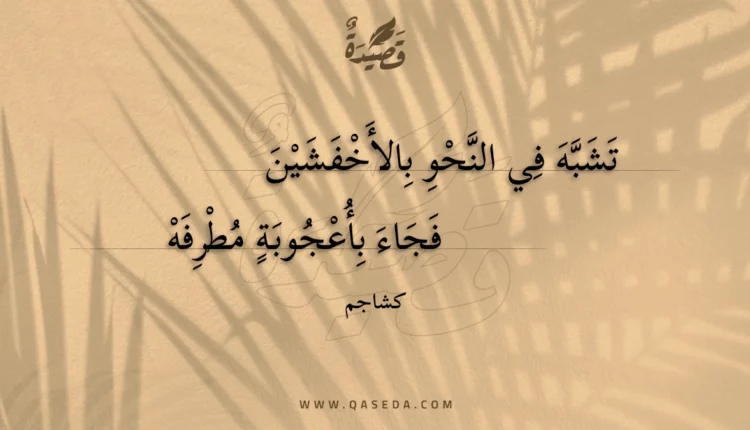 قَصِيدَةٌ
تَشَبَّهَ فِي النَّحْوِ بِالأَخْفَشَيْنَ
فَجَاءَ بِأُعْجُوبَةٍ مُطْرِفَهْ
كشاجم
WWW.QASEDA.COM